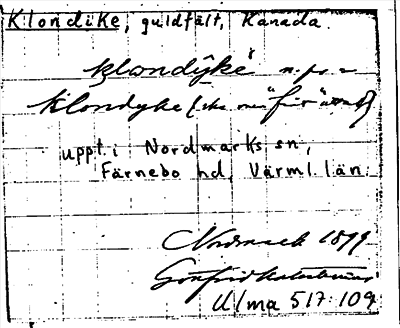 Klondike, guldfält, Kanada.
klondyke n. pr. =
Klondyke
uppt. i Nordmarks sn,
Färnebo hd, Värml. län.
Nordmark 1899
Gottfrid
ULma 517:109